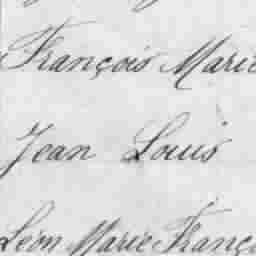 François Marie
Jean Louis
Léon Marie Franço